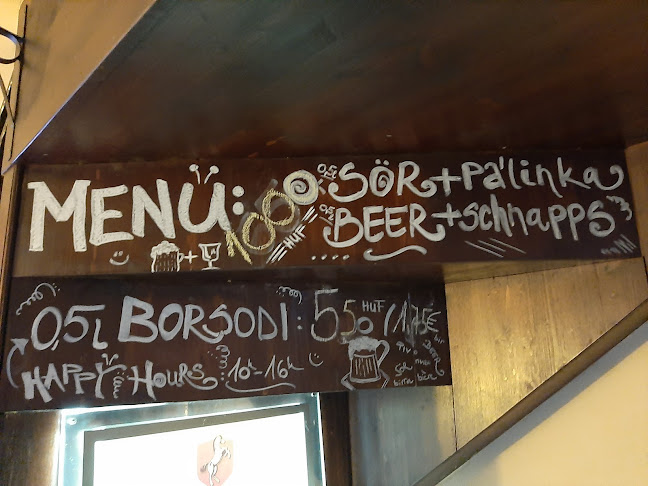 MENÜ: 1000 HUF 0,5L SÖR + Pálinka
0,5L BEER + schnapps
0,5L BORSODI: 550 HUF / 1,75€
HAPPY HOURS: 10h-16h